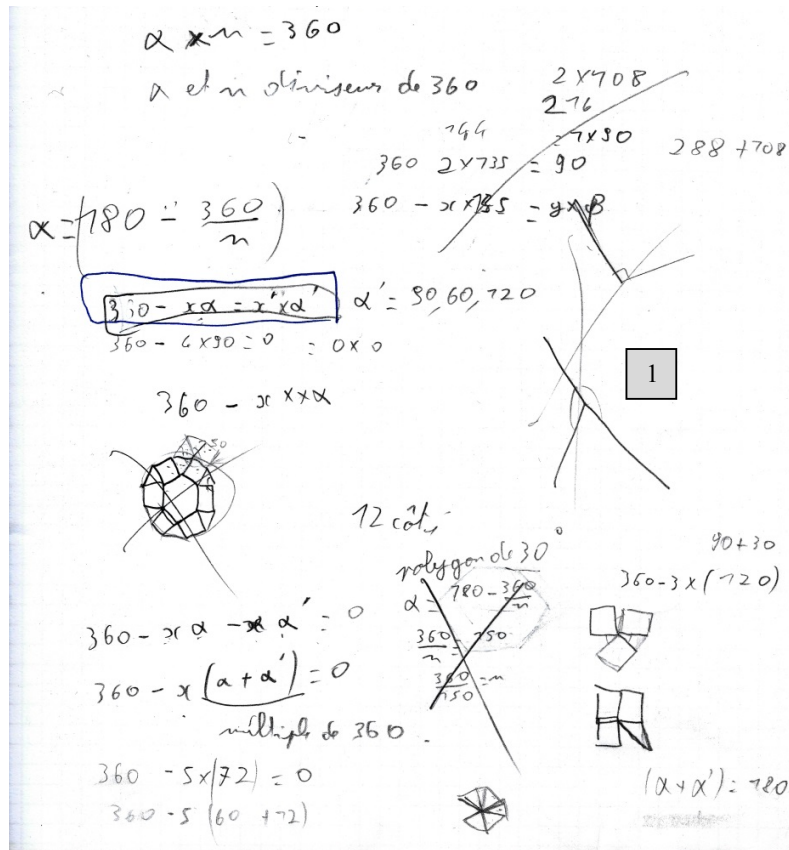 α × n = 360
α et n diviseur de 360
2×108
216
144
= 1×90
288 + 108
360 2×135 = 90
α = (180 - 360/n)
360 - x×135 = y×β
360 - xα = x'×α'
α' = 90, 60, 120
360 - 4×90 = 0 = 0×0
1
360 - x××α
150
12 côtés
polygon de 30°
90+30
360-3×(120)
α = 180 - 360/n
360/n = 150
360/150 = n
360 - xα - x α' = 0
360 - x(α + α') = 0
multiple de 360.
360 - 5×(72) = 0
360 - 5 (60 + 12)
(α + α') = 120